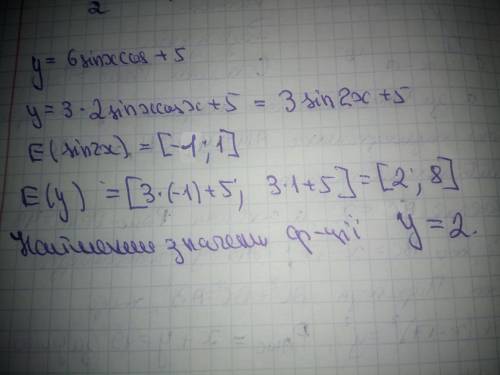 2
y = 6sinxcos + 5
y = 3 · 2sinxcosx + 5 = 3sin2x + 5
E(sin2x) = [-1; 1]
E(y) = [3·(-1)+5; 3·1+5] = [2; 8]
Найменше значення ф-ції y = 2.